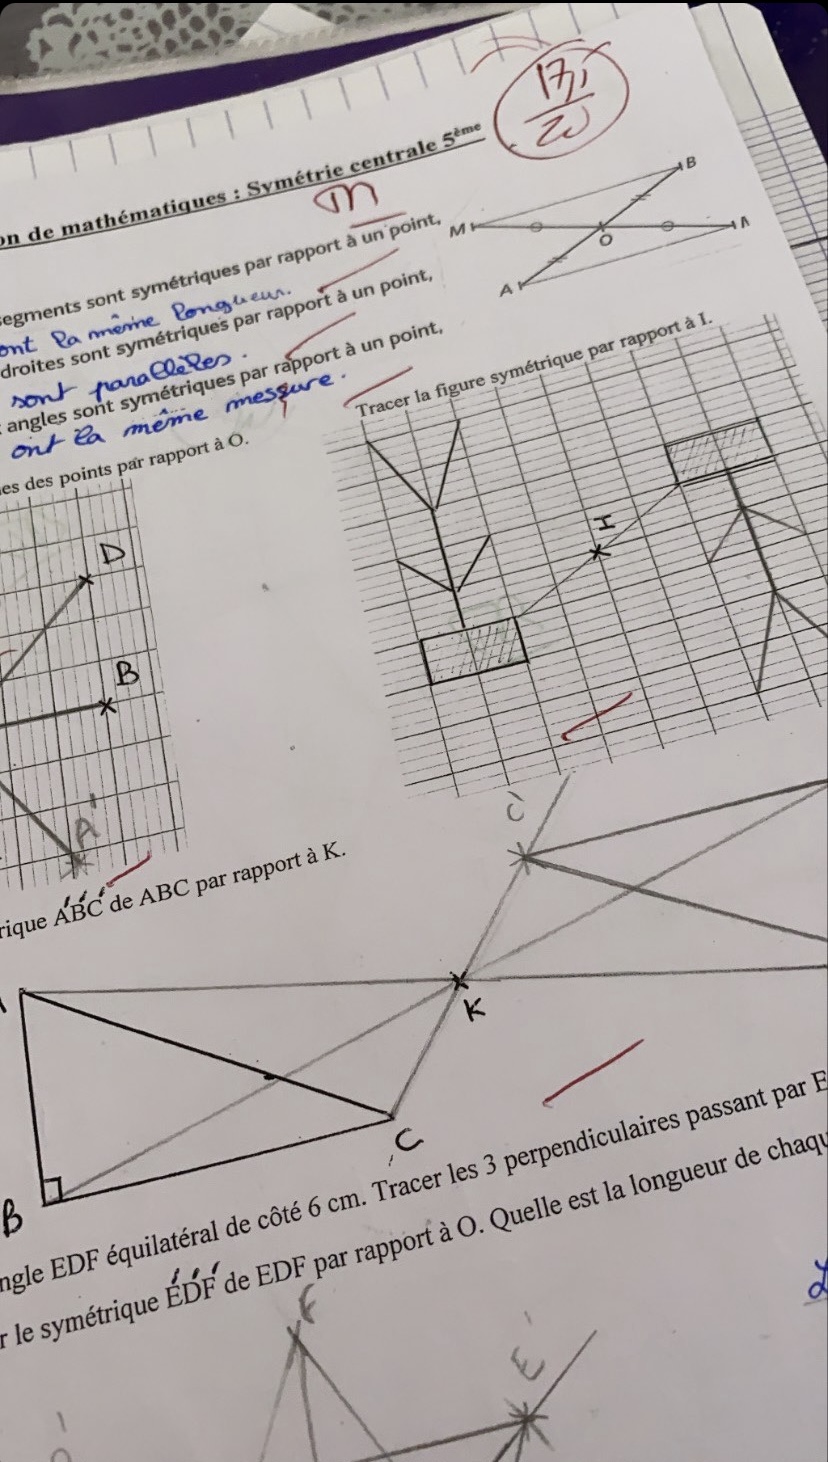 on de mathématiques : Symétrie centrale 5ème
m
20
segments sont symétriques par rapport à un point,
ont la même longueur.
droites sont symétriques par rapport à un point,
sont parallèles.
angles sont symétriques par rapport à un point,
ont la même messure.
B
M
O
A
A
es des points par rapport à O.
Tracer la figure symétrique par rapport à I.
D
B
A'
I
rique A'B'C' de ABC par rapport à K.
C'
K
C
B
ngle EDF équilatéral de côté 6 cm. Tracer les 3 perpendiculaires passant par E
r le symétrique E'D'F' de EDF par rapport à O. Quelle est la longueur de chaqu
E'